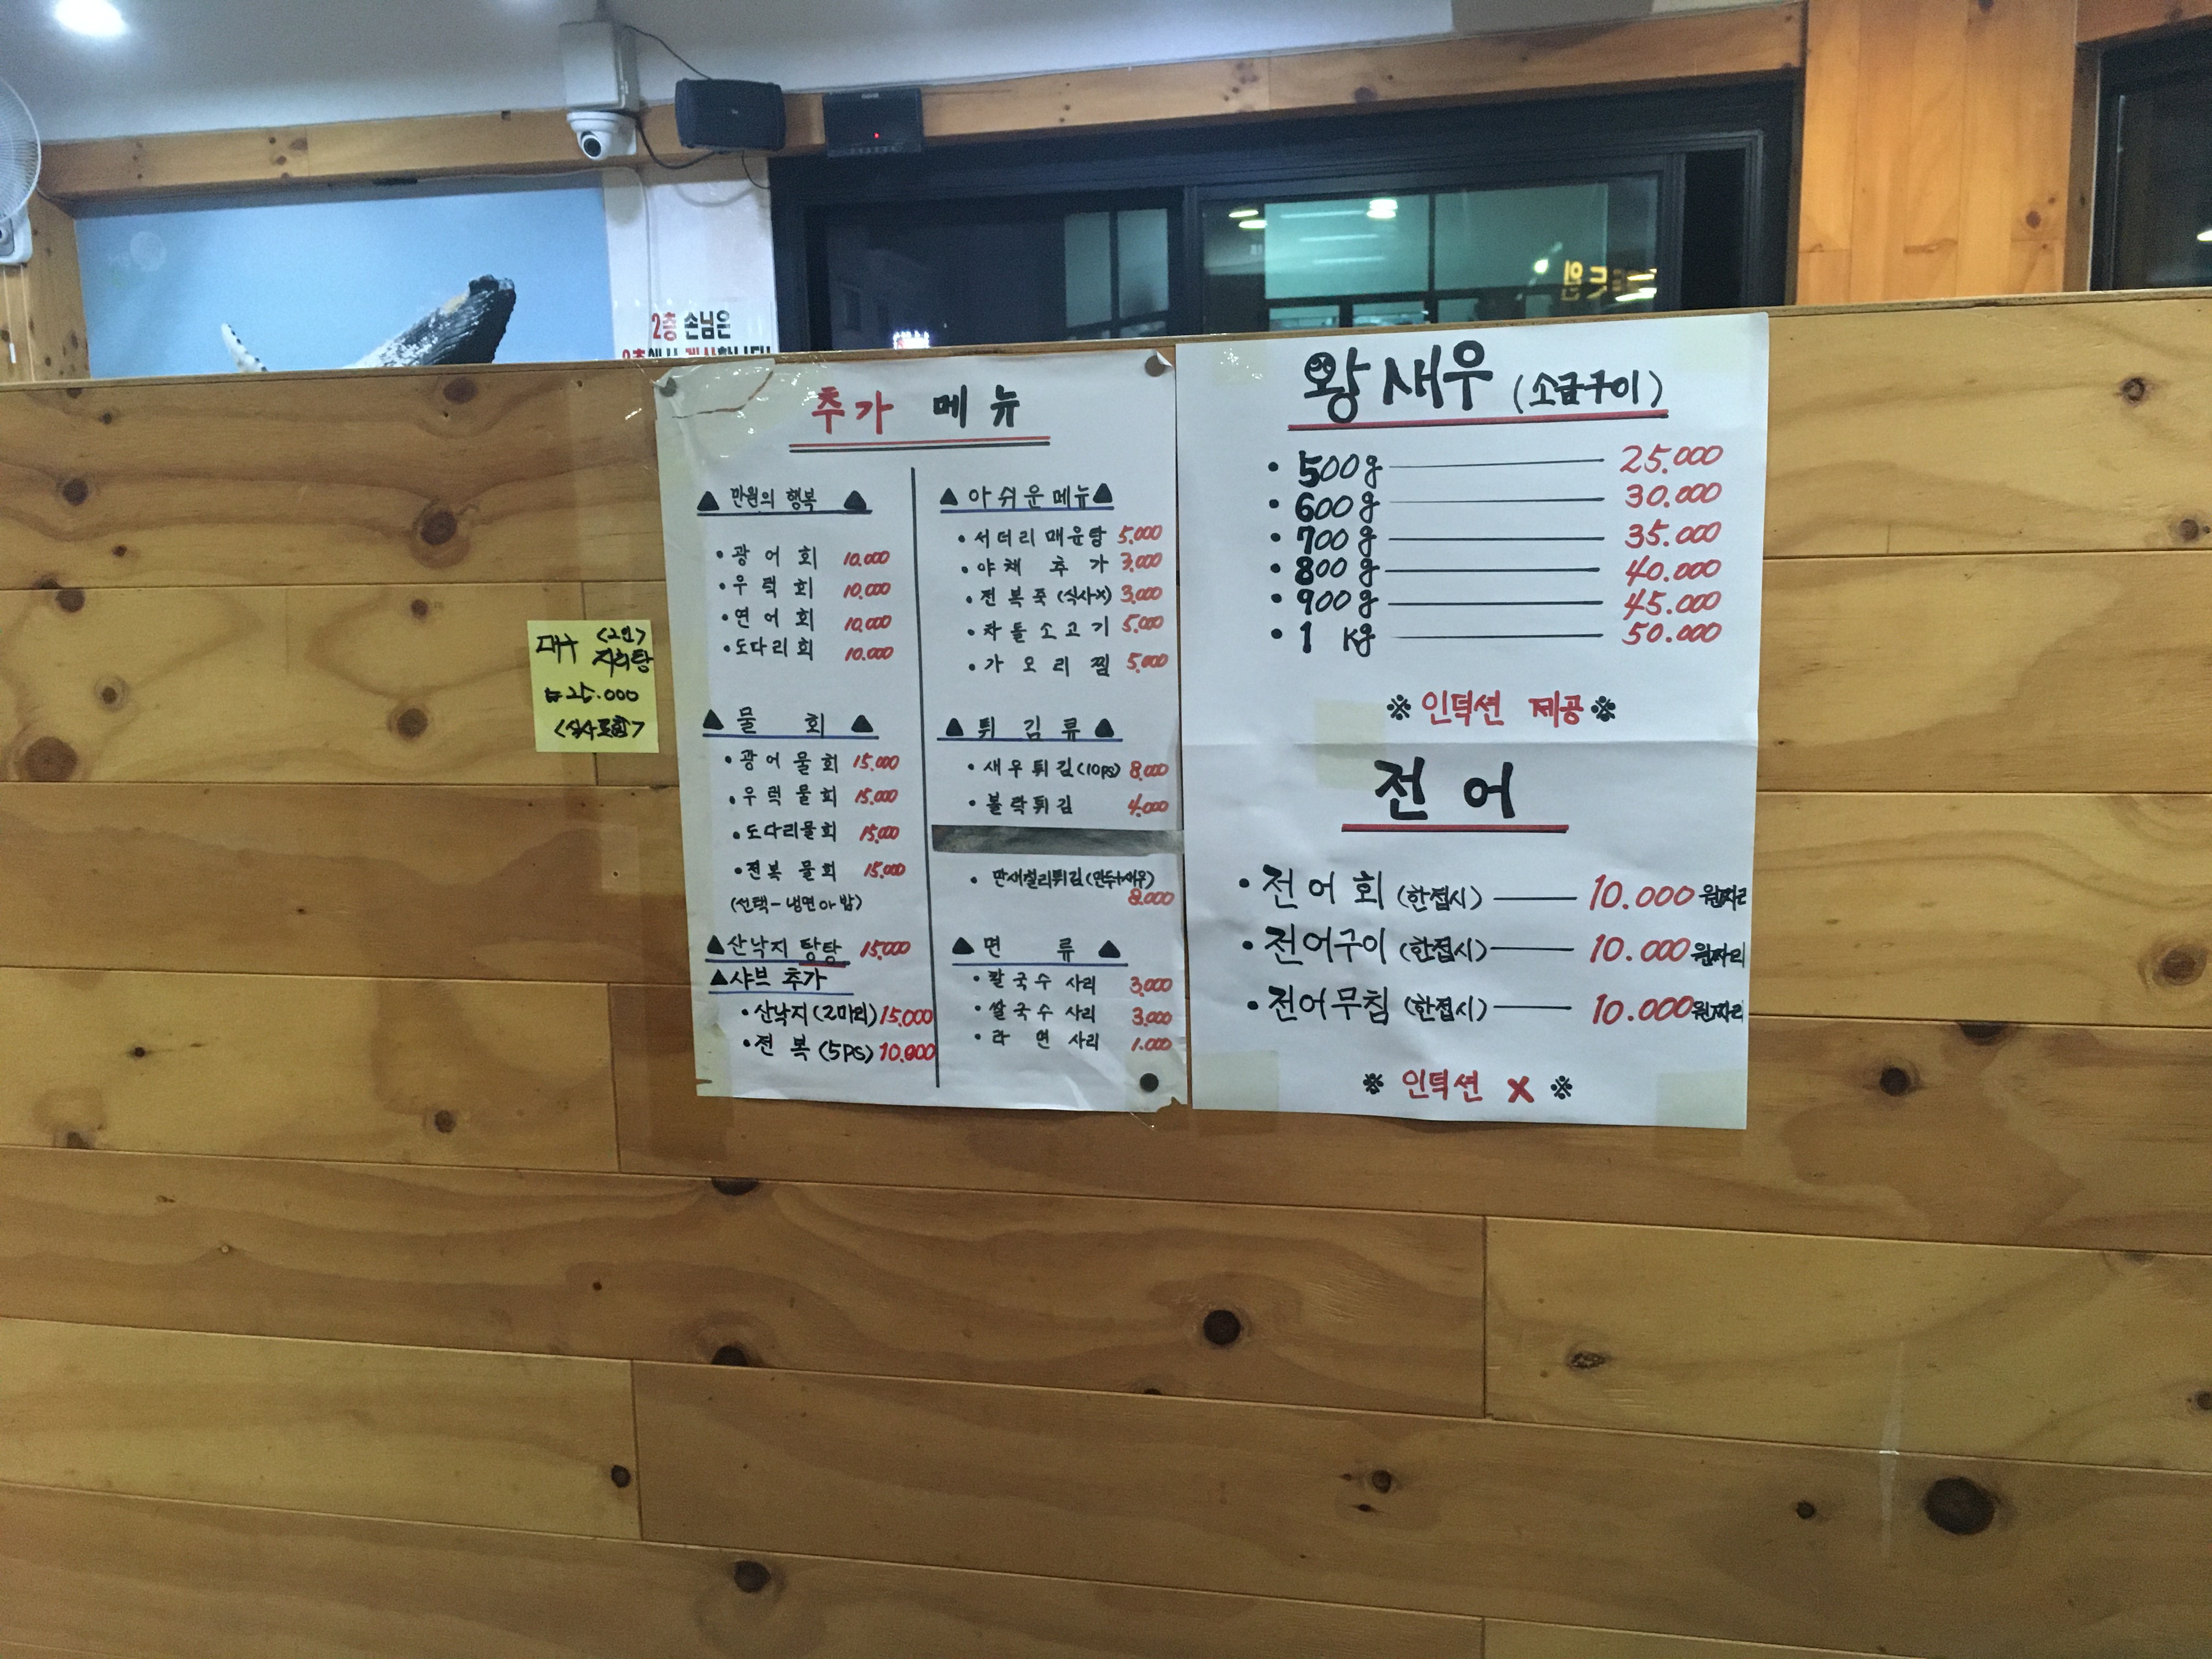 2층 손님은
추가 메뉴
▲ 만원의 행복 ▲
• 광어회 10.000
• 우럭회 10.000
• 연어회 10.000
• 도다리회 10.000
▲ 물 회 ▲
• 광어물회 15.000
• 우럭물회 15.000
• 도다리물회 15.000
• 전복물회 15.000
(선택-냉면or밥)
▲산낙지 탕탕 15.000
▲샤브 추가
• 산낙지(2마리) 15.000
• 전 복 (5PS) 10.000
▲ 아쉬운메뉴▲
• 서더리 매운탕 5.000
• 야채 추가 3.000
• 전복죽 (식사×) 3.000
• 차돌소고기 5.000
• 가오리찜 5.000
▲ 튀김류 ▲
• 새우튀김(10PS) 8.000
• 볼락튀김 4.000
• 만새컬리튀김(만두+새우)
8.000
▲ 면 류 ▲
• 칼국수 사리 3.000
• 쌀국수 사리 3.000
• 라 면 사리 1.000
왕새우 (소금구이)
• 500g 25.000
• 600g 30.000
• 700g 35.000
• 800g 40.000
• 900g 45.000
• 1 Kg 50.000
※ 인덕션 제공※
전 어
• 전어회 (한접시) 10.000 원짜리
• 전어구이 (한접시) 10.000 원짜리
• 전어무침 (한접시) 10.000 원짜리
※ 인덕션 X ※
대구 <2인>
지리탕
₩25.000